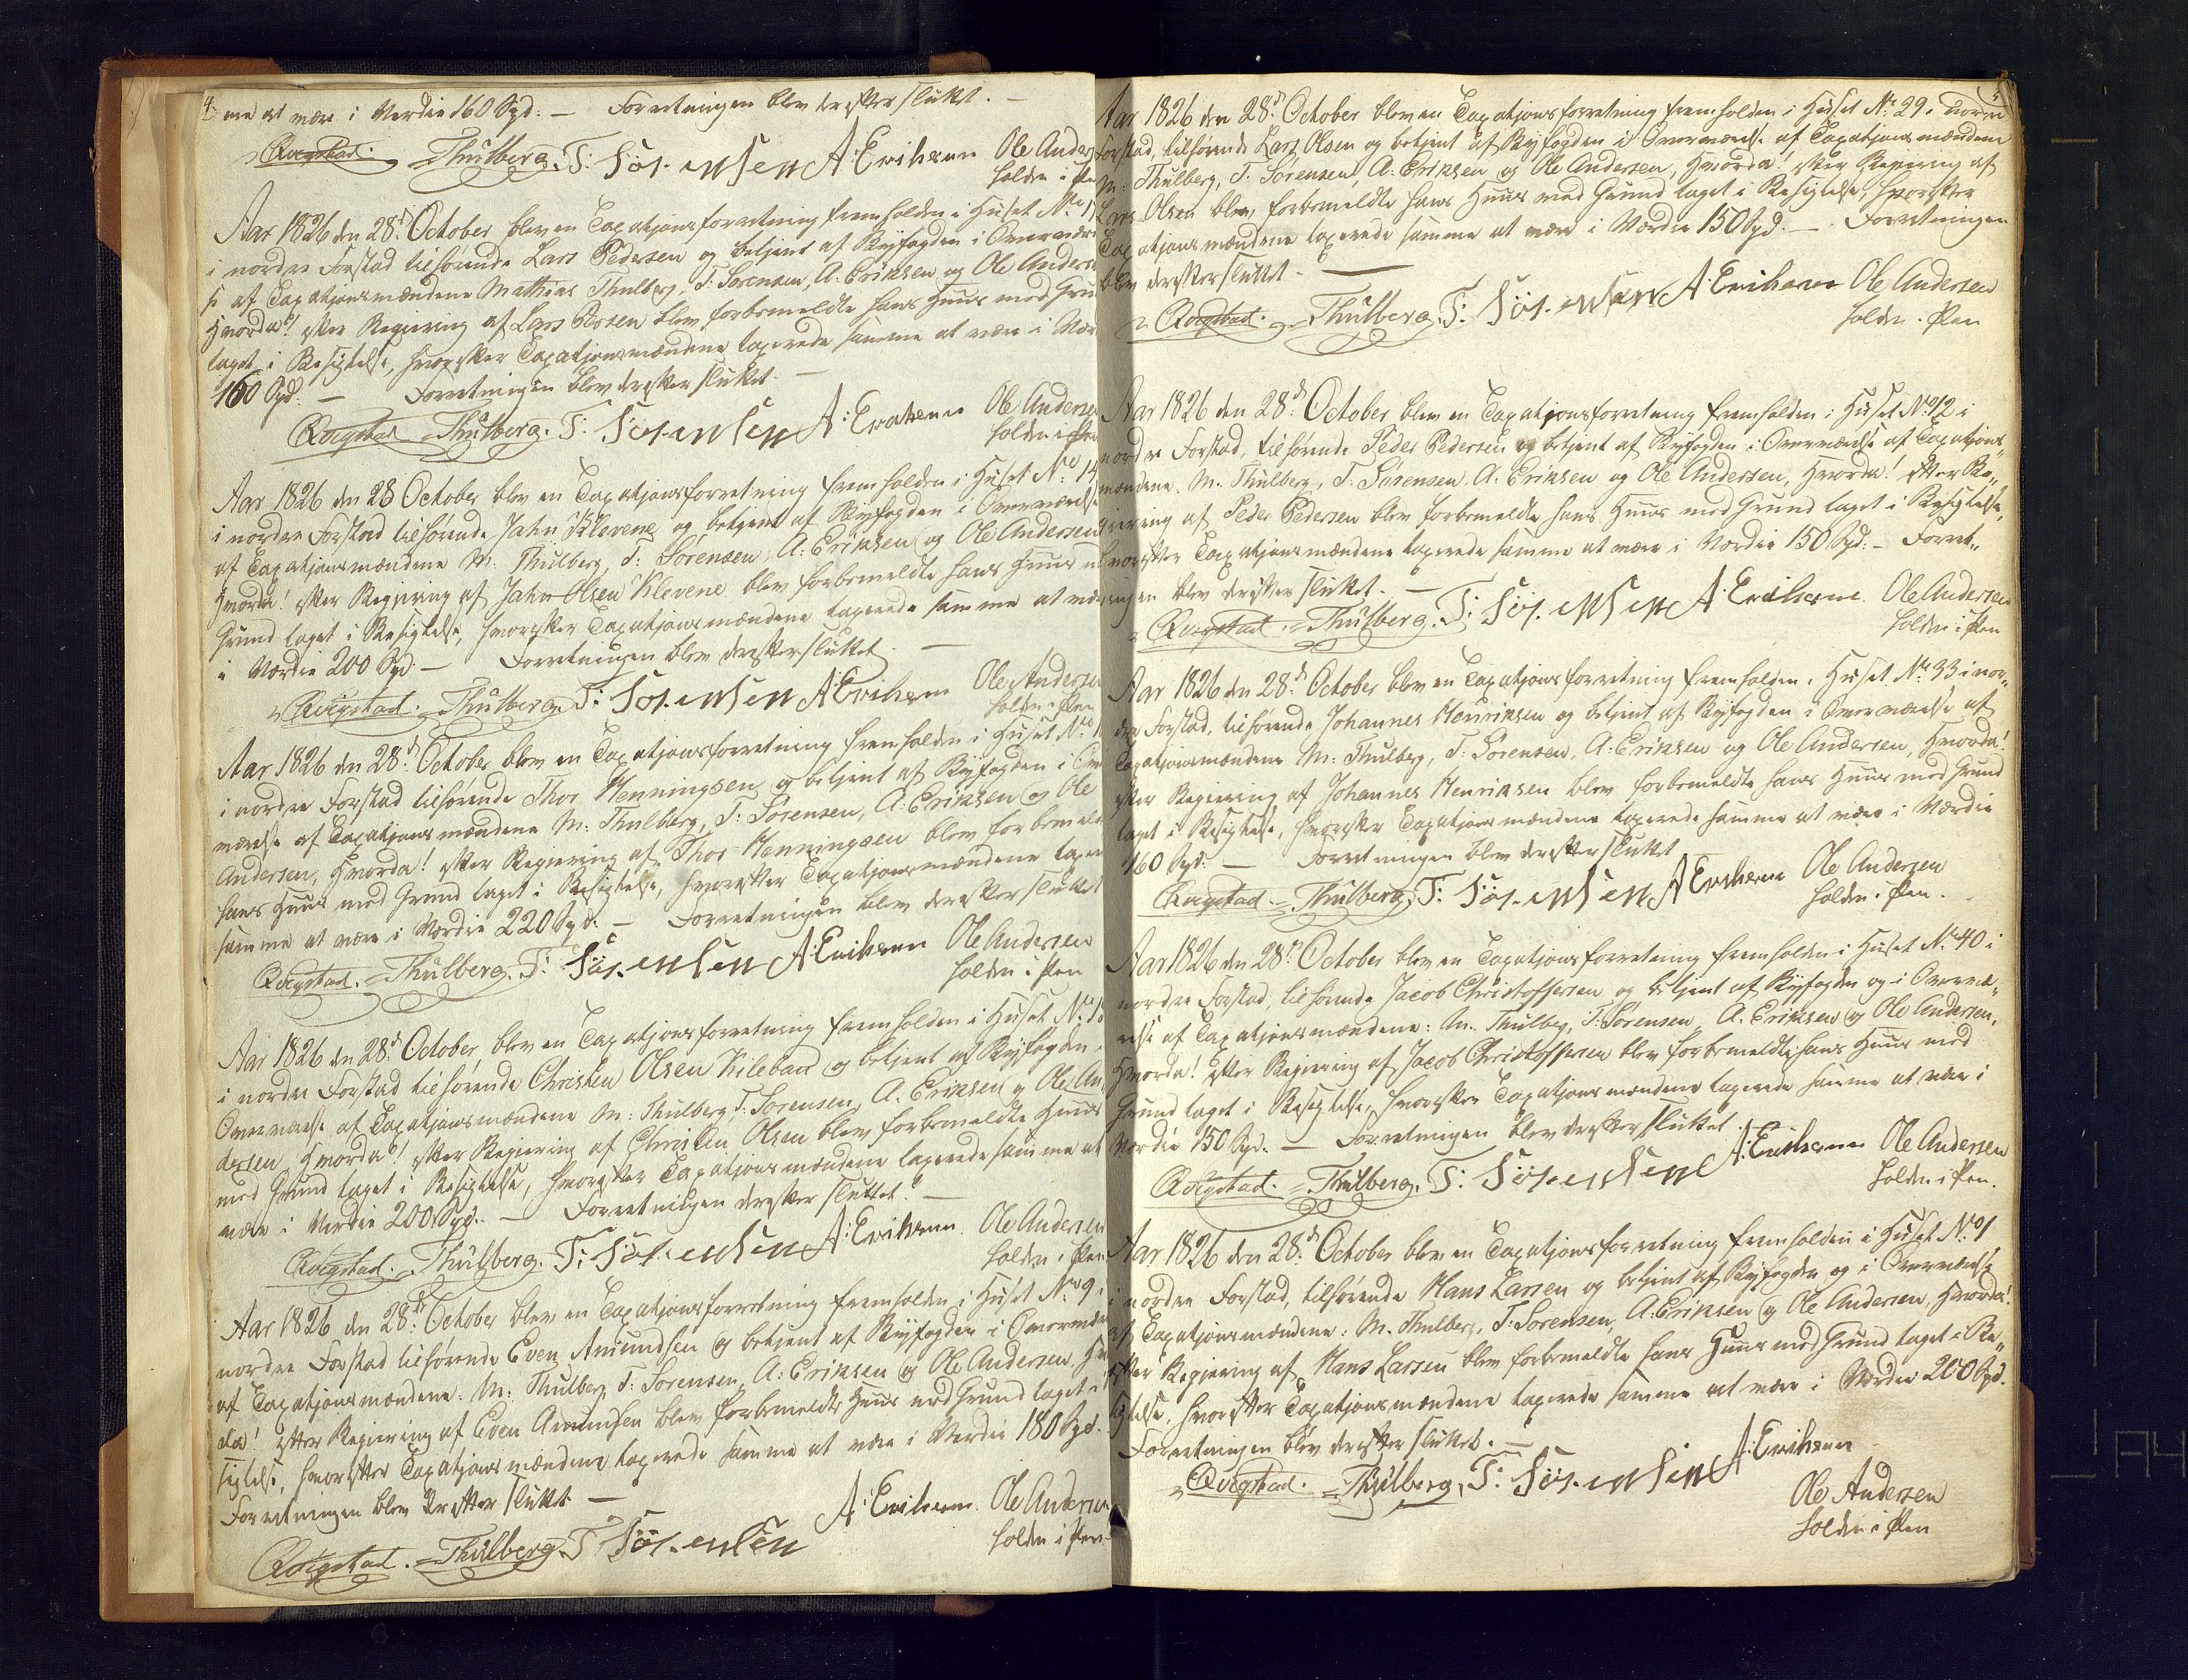 4.
me at være i Verdie 160 Spd: — Forretningen blev derefter sluttet. —
Qvigstad. Thulberg. T: Sörensen A: Erihsenn Ole Ander
holden i Pen
Aar 1826 den 28d October blev en Taxatjonsforretning fremholden i Huset No 1
i nordre Forstad tilhørende Lars Pedersen og betjent af Byfogden i Overværel
se af Taxatjonsmændene Mathias Thulberg, T: Sørensen, A: Eriksen og Ole Anders
Hvorda! efter Regiering af Lars Persen blev forbemeldte hans Huus med Grun
taget i Besigtelse, hvorefter Taxatjonsmændene taxerede samme at være i Vær
160 Spd: — Forretningen blev derefter sluttet. —
Qvigstad Thulberg. T: Sörensen A: Erihsenn Ole Anderse
holden i Pen
Aar 1826 den 28 October blev en Taxatjonsforretning fremholden i Huset No 14
i nordre Forstad tilhørende Jahn Klevene og betjent af Byfogden i Overværelse
af Taxatjonsmændene M: Thulberg, T: Sørensen, A: Eriksen og Ole Andersen
Hvorda! efter Regjering af Jahn Olsen Klevene blev forbemeldte hans Huus m
Grund taget i Besigtelse, hvorefter Taxatjonsmændene taxerede samme at være
i Værdie 200 Spd — Forretningen blev derefter sluttet. —
Qvigstad. Thulberg. T: Sörensen A: Erihsenn Ole Anderse
holden i Pen
Aar 1826 den 28d October blev en Taxatjonsforretning fremholden i Huset No 1
i nordre Forstad tilhørende Thor Henningsen og betjent af Byfogden i Over
værelse af Taxatjonsmændene M: Thulberg, T: Sørensen, A: Eriksen og Ole
Andersen, Hvorda! efter Regiering af Thor Henningsen blev forbemeld
hans Huus med Grund taget i Besigtelse, hvorefter Taxatjonsmændene taxer
samme at være i Værdie 220 Spd: — Forretningen blev derefter sluttet
Qvigstad. Thulberg. T: Sörensen A: Erihsenn Ole Andersen
holden i Pen
Aar 1826 den 28d October, blev en Taxatjonsforretning fremholden i Huset No 1
i nordre Forstad tilhørende Christen Olsen Kilebau og betjent af Byfogden i
Overværelse af Taxatjonsmændene M: Thulberg, T: Sørensen, A. Eriksen og Ole An
dersen Hvorda! efter Regiering af Christen Olsen blev forbemeldte Huus
med Grund taget i Besigtelse, hvorefter Taxatjonsmændene taxerede samme at
være i Verdie 200 Spd. — Forretningen derefter sluttet. —
Qvigstad. Thulberg. T: Sörensen A: Erihsenn. Ole Andersen
holden i Pen
Aar 1826 den 28d October blev en Taxatjonsforretning fremholden i Huset No 9 i
nordre Forstad tilhørende Even Amundsen og betjent af Byfogden i Overvære
af Taxatjonsmændene: M: Thulberg, T: Sørensen, A: Eriksen og Ole Andersen, Hvor
da! efter Regiering af Even Amundsen blev forbemeldte Huus med Grund taget i
sigtelse, hvorefter Taxatjonsmændene taxerede samme at være i Værdie 180 Spd.
Forretningen blev derefter sluttet —
Qvigstad. Thulberg. T Sörensen A: Erihsenn. Ole Andersen
holden i Pen.
5
Aar 1826 den 28d October blev en Taxatjonsforretning fremholden i Huset No 29 i nordre
Forstad, tilhørende Lars Olsen og betjent af Byfogden i Overværelse af Taxatjonsmændene
M: Thulberg, T: Sørensen, A: Eriksen og Ole Andersen, Hvorda! efter Regiering af
Lars Olsen blev, forbemeldte hans Huus med Grund taget i Besigtelse, hvorefter
Taxatjonsmændene taxerede samme at være i Værdie 150 Spd. — Forretningen
blev derefter sluttet. —
Qvigstad. Thulberg. T: Sörensen A: Erihsenn Ole Andersen
holden i Pen
Aar 1826 den 28d October blev en Taxatjonsforretning fremholden i Huset No 12 i
nordre Forstad, tilhørende Peder Pedersen og betjent af Byfogden i Overværelse af Taxatjons„
mændene. M: Thulberg, T: Sørensen, A: Eriksen og Ole Andersen, Hvorda! efter Re„
giering af Peder Pedersen blev forbemeldte hans Huus med Grund taget i Besigtelse,
hvorefter Taxatjonsmændene taxerede samme at være i Værdie 150 Spd: — Forret„
ningen blev derefter sluttet. —
Qvigstad. Thulberg. T: Sörensen A: Erihsenn. Ole Andersen
holden i Pen
Aar 1826 den 28d October blev en Taxatjonsforretning fremholden i Huset No 33 i nor„
dre Forstad, tilhørende Johannes Henriksen og betjent af Byfogden i Overværelse af
Taxatjonsmændene M: Thulberg, T: Sørensen, A: Eriksen og Ole Andersen, Hvorda!
efter Regiering af Johannes Henriksen blev forbemeldte hans Huus med Grund
taget i Besigtelse, hvorefter Taxatjonsmændene taxerede samme at være i Værdie
160 Spd: — Forretningen blev derefter sluttet
Qvigstad. Thulberg. T: Sörensen A Erihsenn Ole Andersen
holden i Pen.
Aar 1826 den 28d October blev en Taxatjonsforretning fremholden i Huset No 40 i
nordre Forstad, tilhørende Jacob Christoffersen og betjent af Byfogden og i Overvæ„
relse af Taxatjonsmændene: M. Thulberg, T: Sørensen, A. Eriksen og Ole Andersen,
Hvorda! efter Regiering af Jacob Christoffersen blev forbemeldte hans Huus med
Grund taget i Besigtelse, hvorefter Taxatjonsmændene taxerede samme at være i
Værdie 150 Spd. — Forretningen blev derefter sluttet.
Qvigstad. Thulberg. T: Sörensen A: Erihsenn Ole Andersen
holden i Pen.
Aar 1826 den 28d October blev en Taxatjonsforretning fremholden i Huset No 1
i nordre Forstad, tilhørende Hans Larsen og betjent af Byfogden og i Overværelse
af Taxatjonsmændene: M. Thulberg, T: Sørensen, A: Eriksen og Ole Andersen, Hvorda!
efter Regiering af Hans Larsen blev forbemeldte hans Huus med Grund taget i Be„
sigtelse, hvorefter Taxatjonsmændene taxerede samme at være i Værdie 200 Spd.
Forretningen blev derefter sluttet. —
Qvigstad. Thulberg, T: Sörensen A: Erihsenn
Ole Andersen
holden i Pen